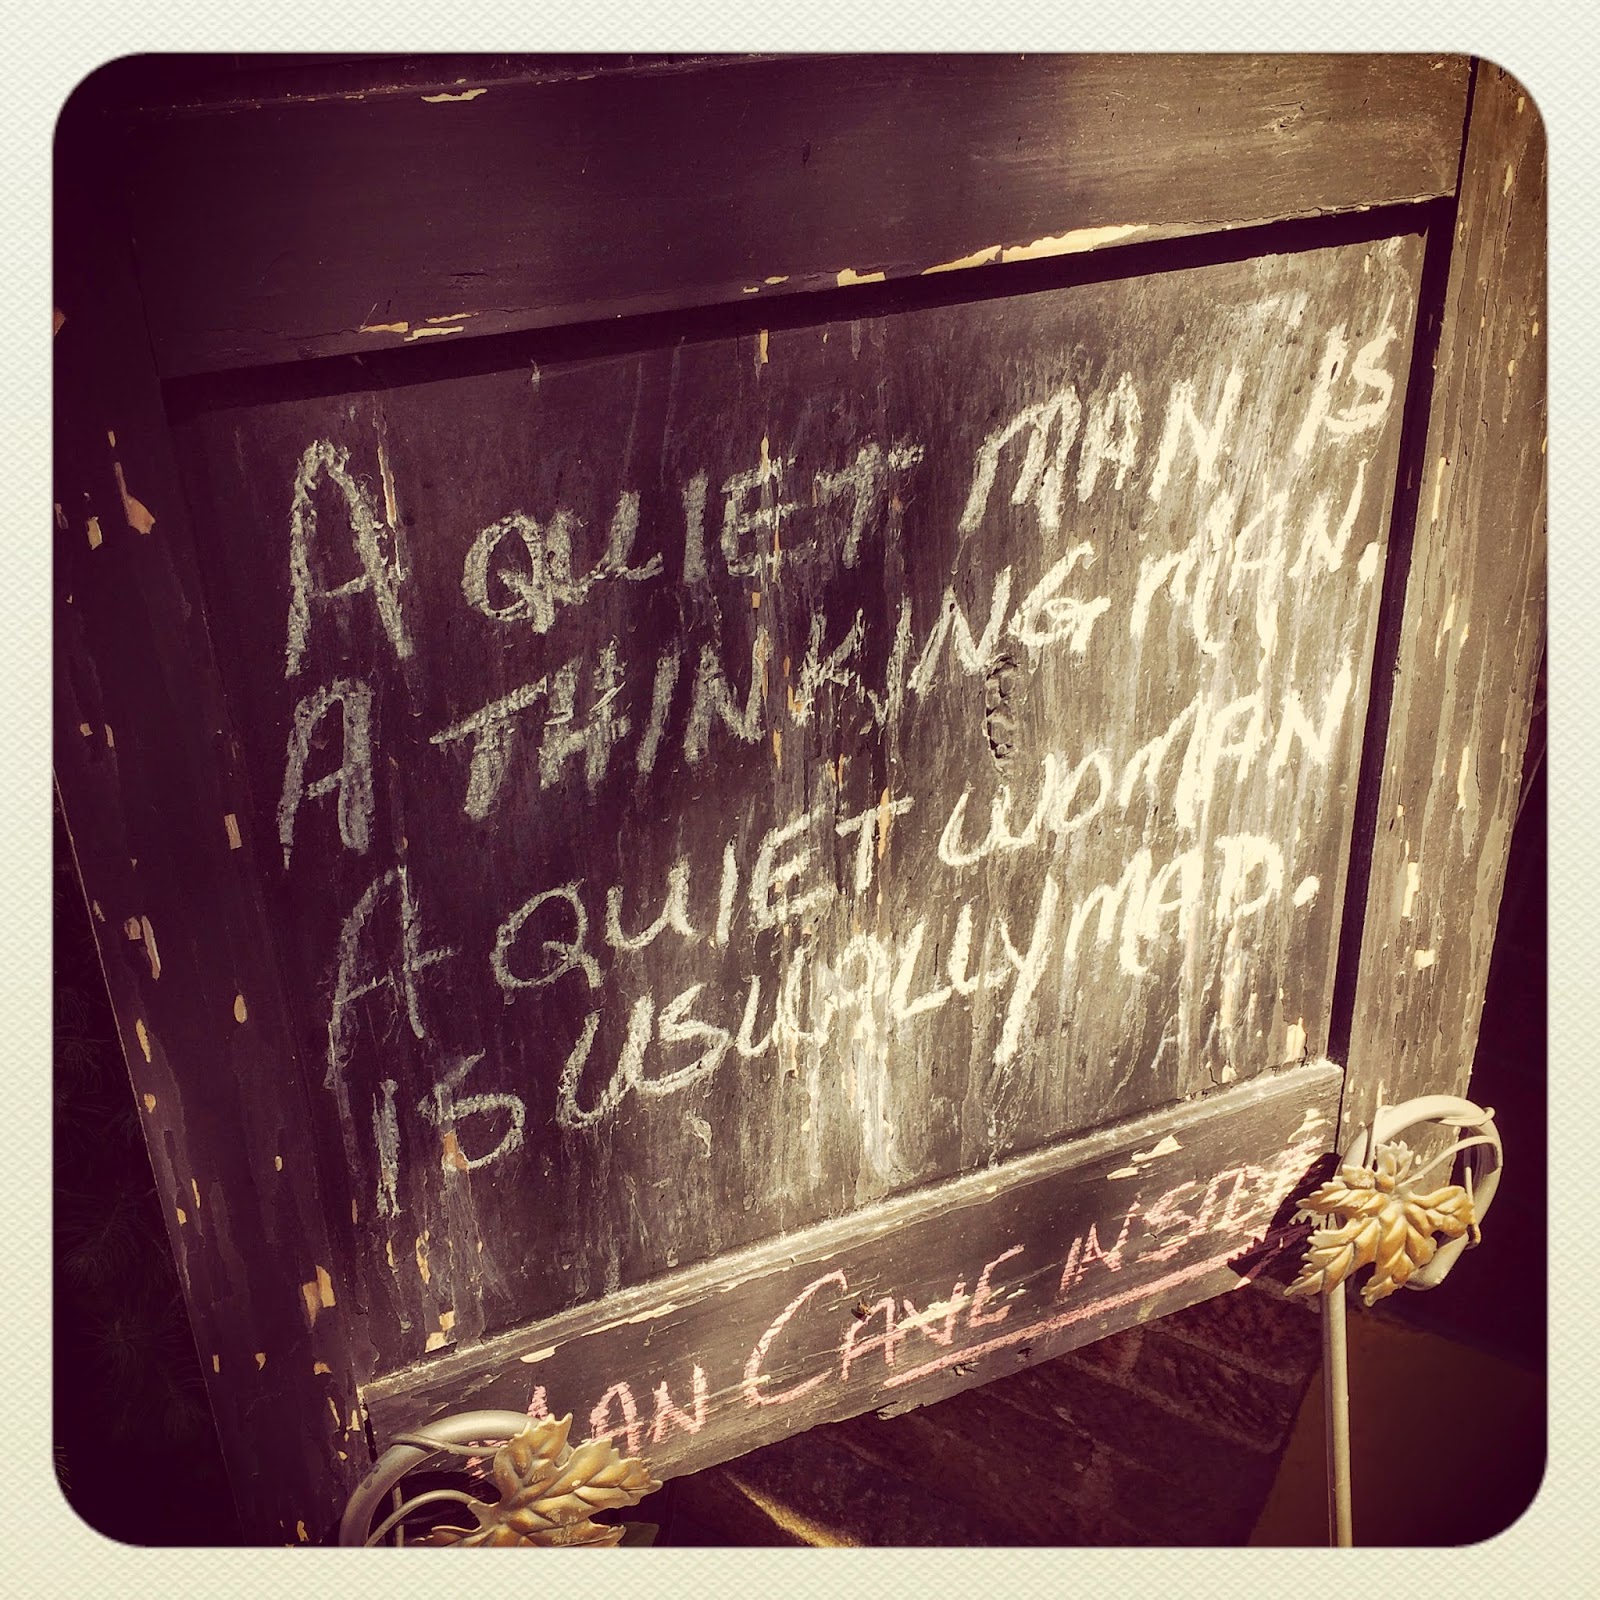 A QUIET MAN IS
A THINKING MAN.
A QUIET WOMAN
IS USUALLY MAD.
MAN CAVE INSIDE